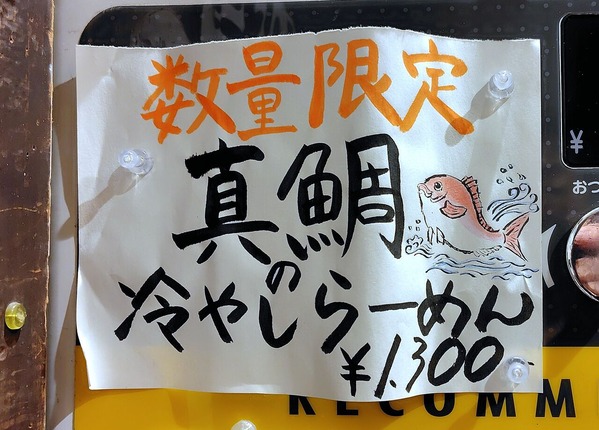 数量限定
真鯛
の
冷やしらーめん
¥1.300
¥
おつ
RECOMM